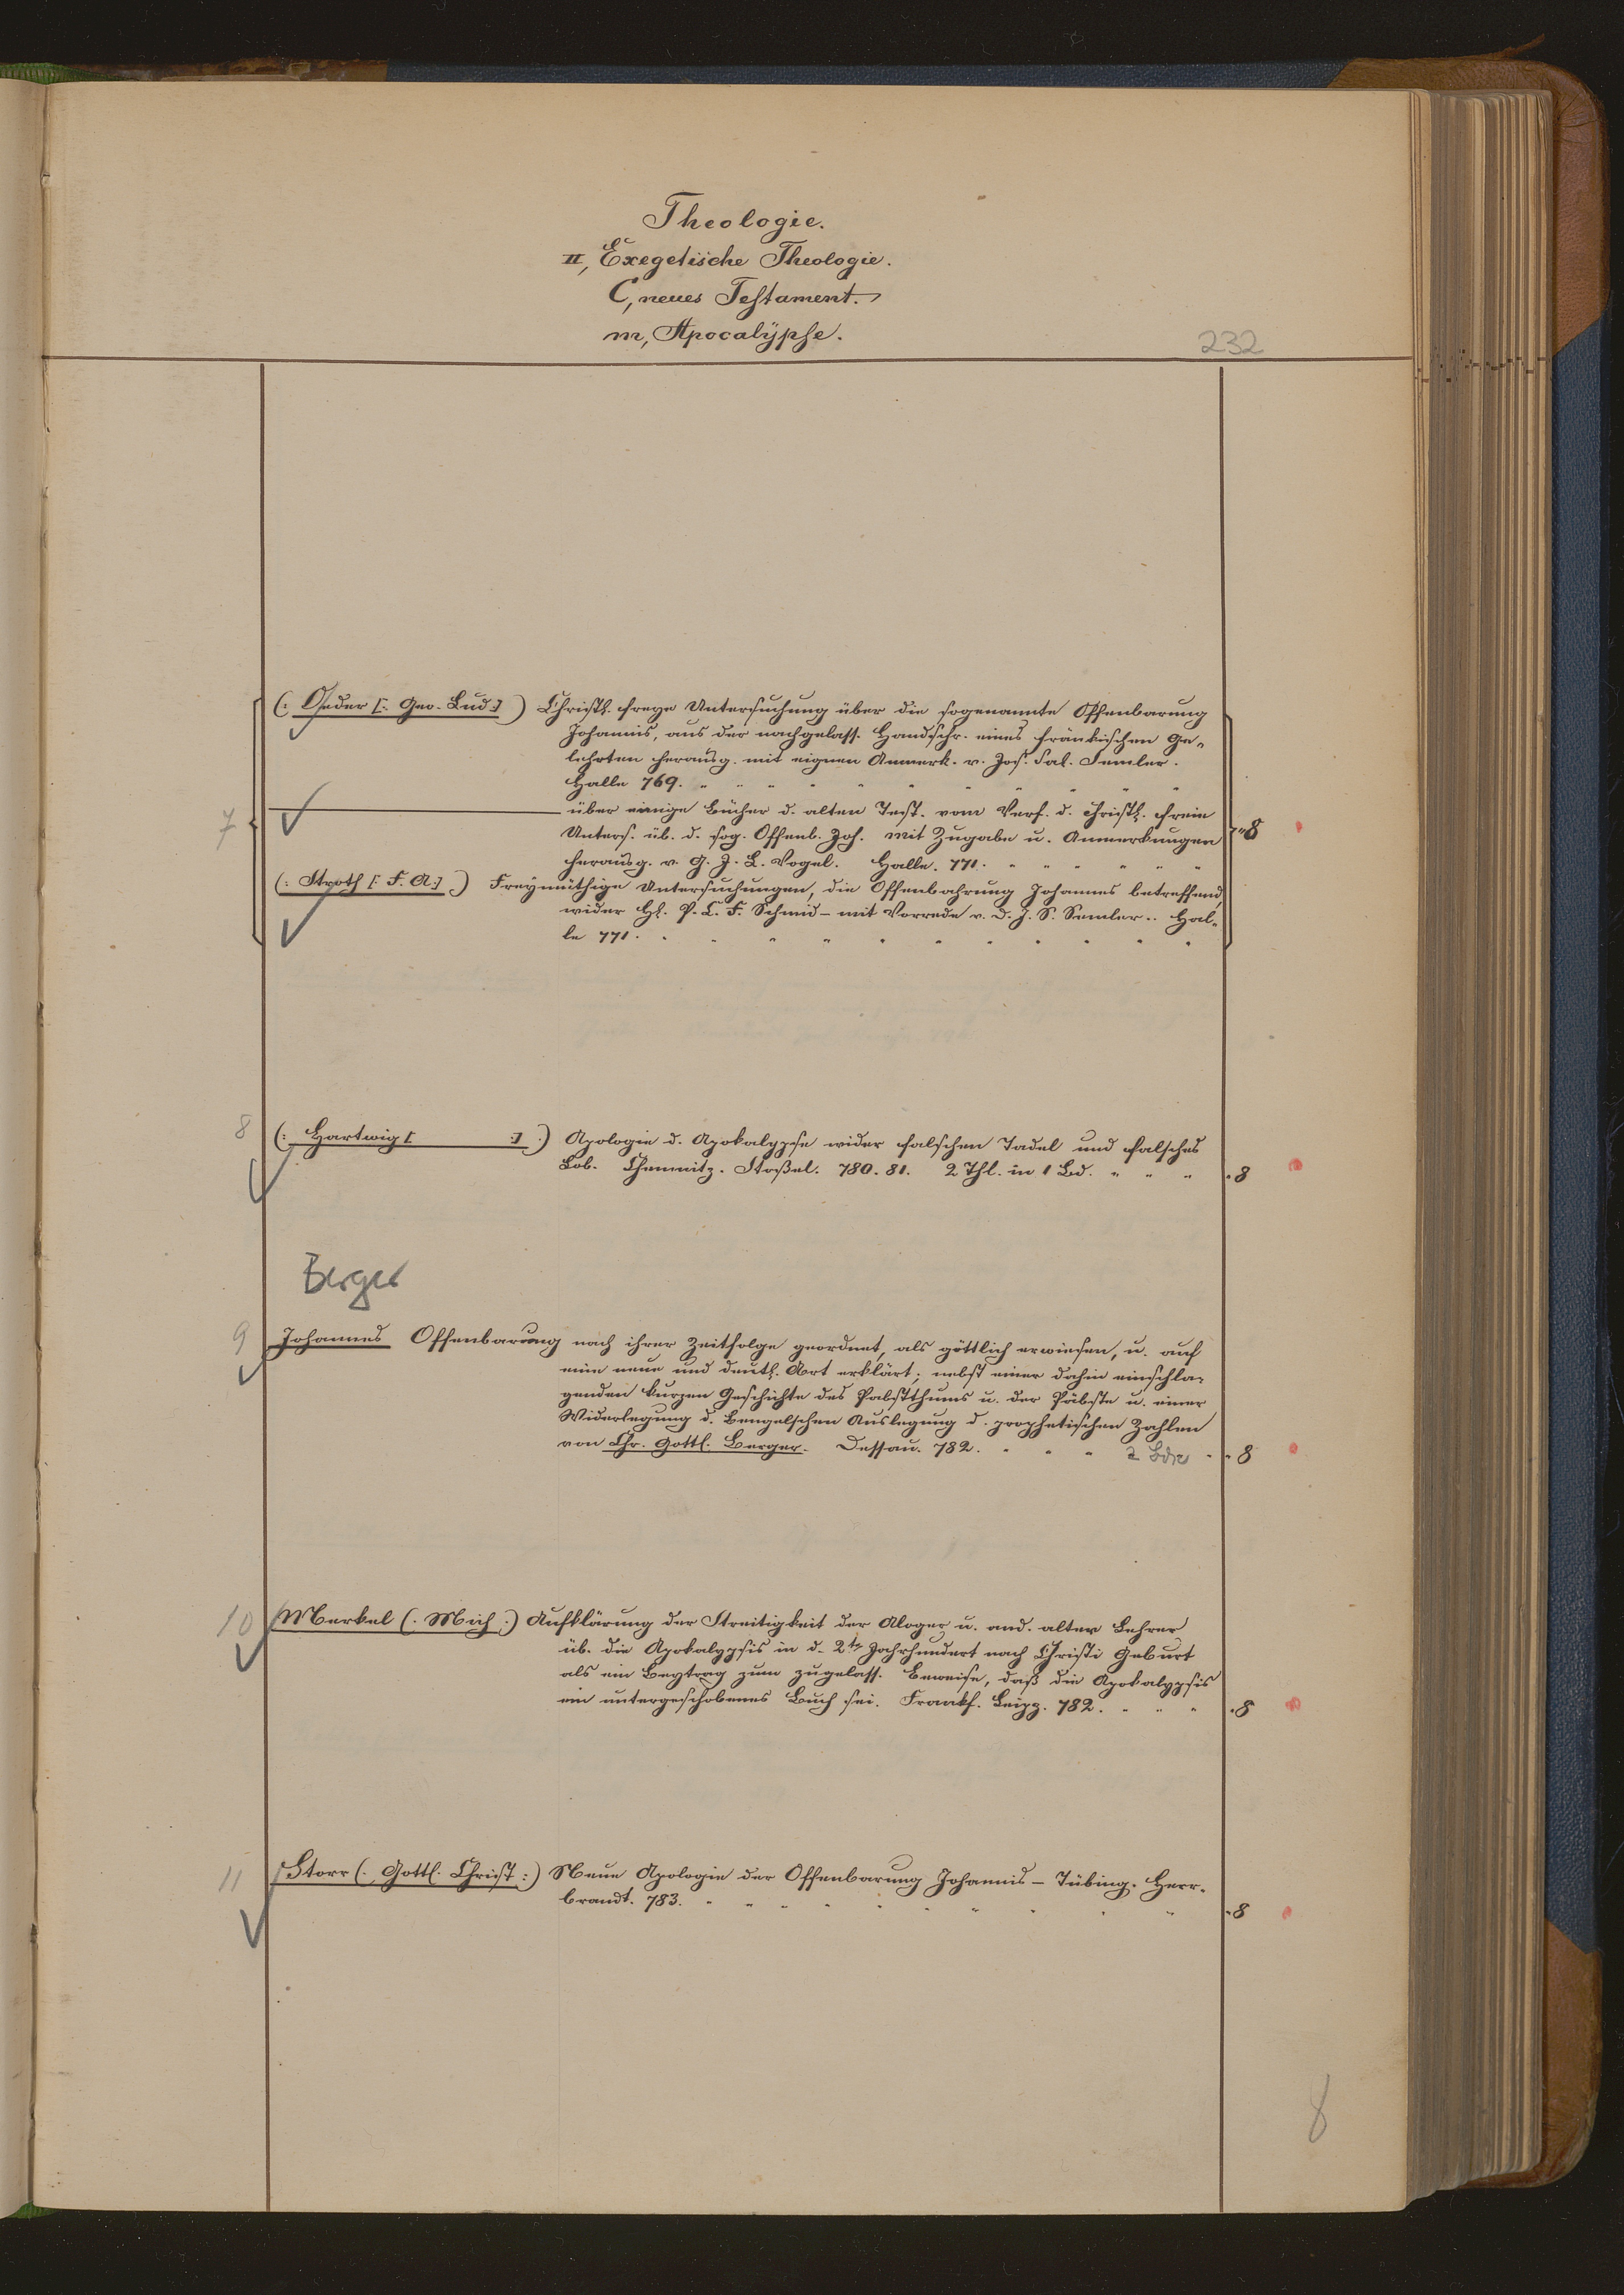 Theologie.
II, Exegetische Theologie.
C, neues Testament.
m, Apocalÿpse.
232
(: Oeder [: Geo. Lud :] ) Christl. freye Untersuchung über die sogenannte Offenbarung
Johannis, aus der nachgelass. Handschr. eines fränkischen Ge-
lehrten herausg. mit eignen Anmerk. v. Joh. Sal. Semler.
Halle 769. " " " " " " " " " " "
7 über einige Bücher d. alten Test. vom Verf. d. christl. freien
Unters. üb. d. sog. Offenb. Joh. mit Zugabe u. Anmerkungen "8
herausg. v. G. J. L. Vogel. Halle. 771. " " " " " "
(: Stroth [: F. A :] :) Freÿmüthige Untersuchungen, die Offenbahrung Johannes betreffend,
wider H. P. C. F. Schmid - mit Vorrede v. D. J. S. Semler.. Hal-
le 771. " " " " " " " " " " "
8 (: Hartwig [: :] :) Apologie d. Apokalypse wider falschen Tadel und falsches
Lob. Chemnitz. Stoßel. 780. 81. 2 Thl. in 1 Bd. " " " "8
Berger
9 Johannes Offenbarung nach ihrer Zeitfolge geordnet, als göttlich erwiesen, u. auf
eine neue und deutl. Art erklärt; nebst einer dahin einschla-
genden kurzen Geschichte des Pabstthums u. der Päbste u. einer
Widerlegung d. Bengelschen Auslegung d. prophetischen Zahlen
von Chr. Gottl. Berger. Dessau. 782. " " " 2 Bde " "8
10 Merkel (: Mich :) Aufklärung der Streitigkeit der Aloger u. and. alter Lehrer
üb. die Apokalypsis in d. 2tn Jahrhundert nach Christi Geburt
als ein Beytrag zum zugelass. Beweise, daß die Apokalypsis
ein untergeschobenes Buch sei. Frankf. Leipz. 782. " " " "8
11 Storr (: Gottl. Christ :) Neue Apologie der Offenbarung Johannis - Tübing. Heer-
brandt. 783. " " " " " " " " " " "8
8